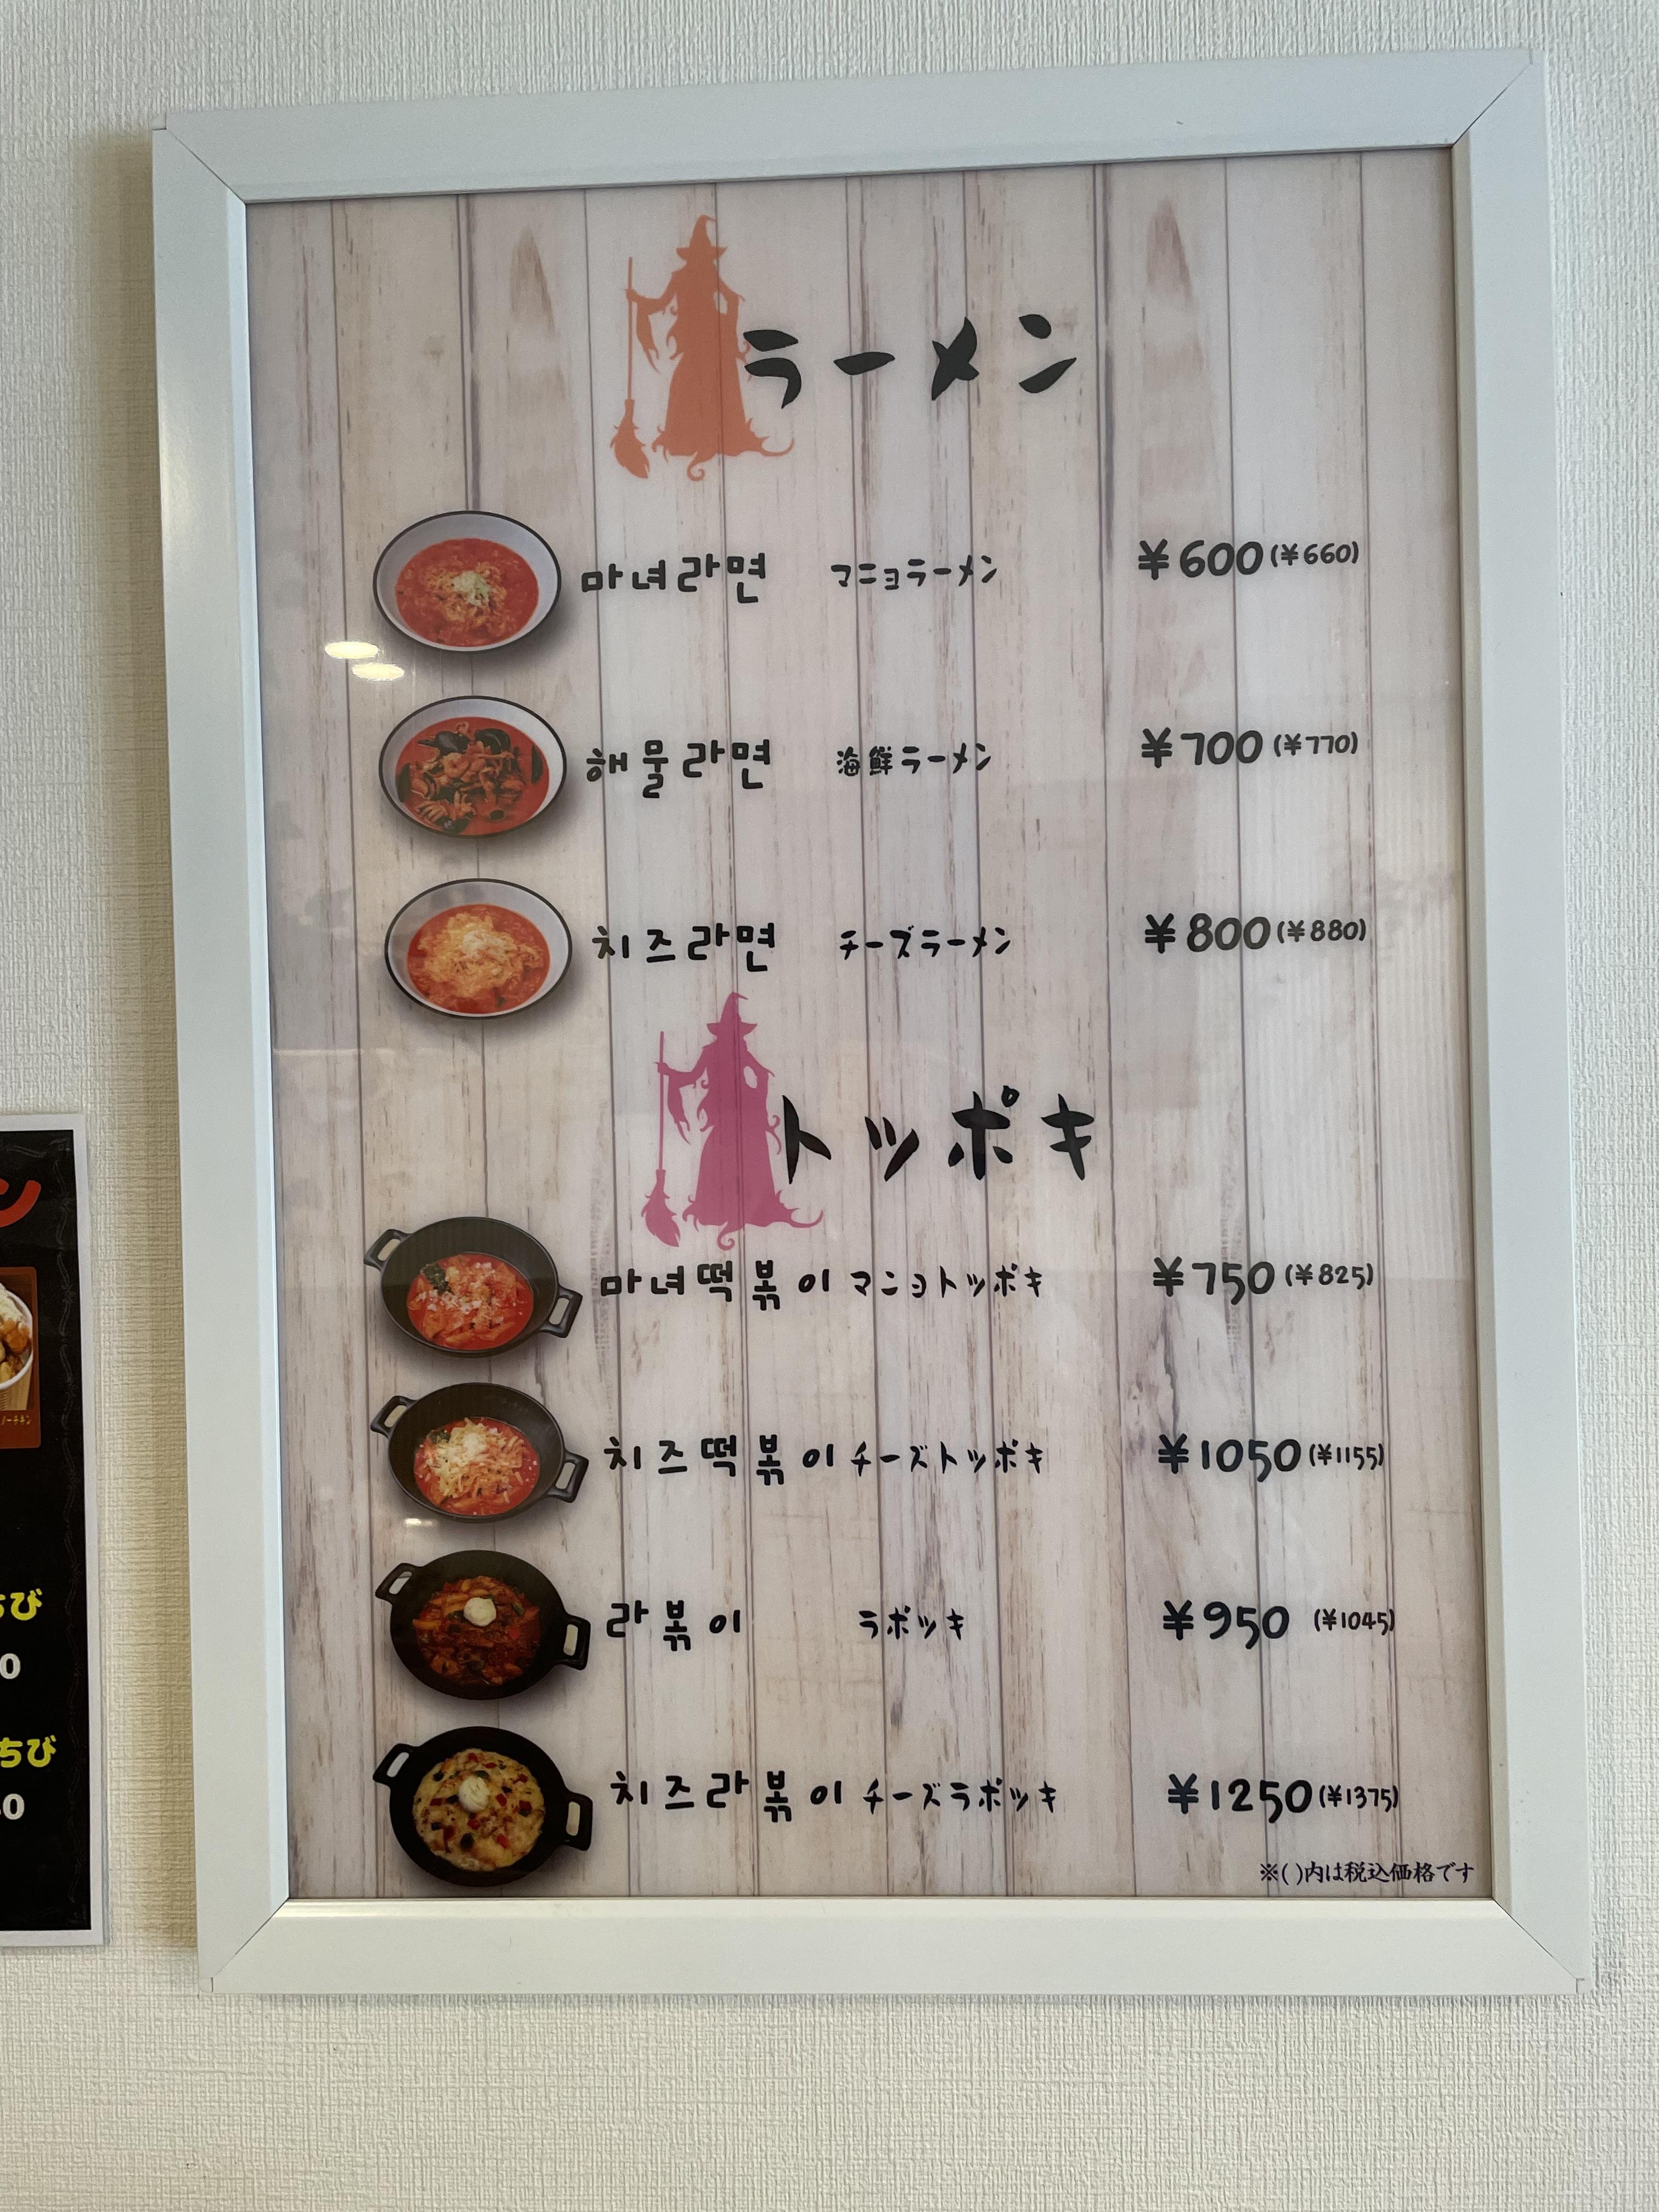 ラーメン
마녀라면 マニョラーメン ¥600(¥660)
해물라면 海鮮ラーメン ¥700(¥770)
치즈라면 チーズラーメン ¥800(¥880)
トッポキ
마녀떡볶이 マニョトッポキ ¥750(¥825)
치즈떡볶이 チーズトッポキ ¥1050(¥1155)
라볶이 ラポッキ ¥950 (¥1045)
치즈라볶이 チーズラポッキ ¥1250(¥1375)
※( )内は税込価格です
ン
ちび
0
ちび
0